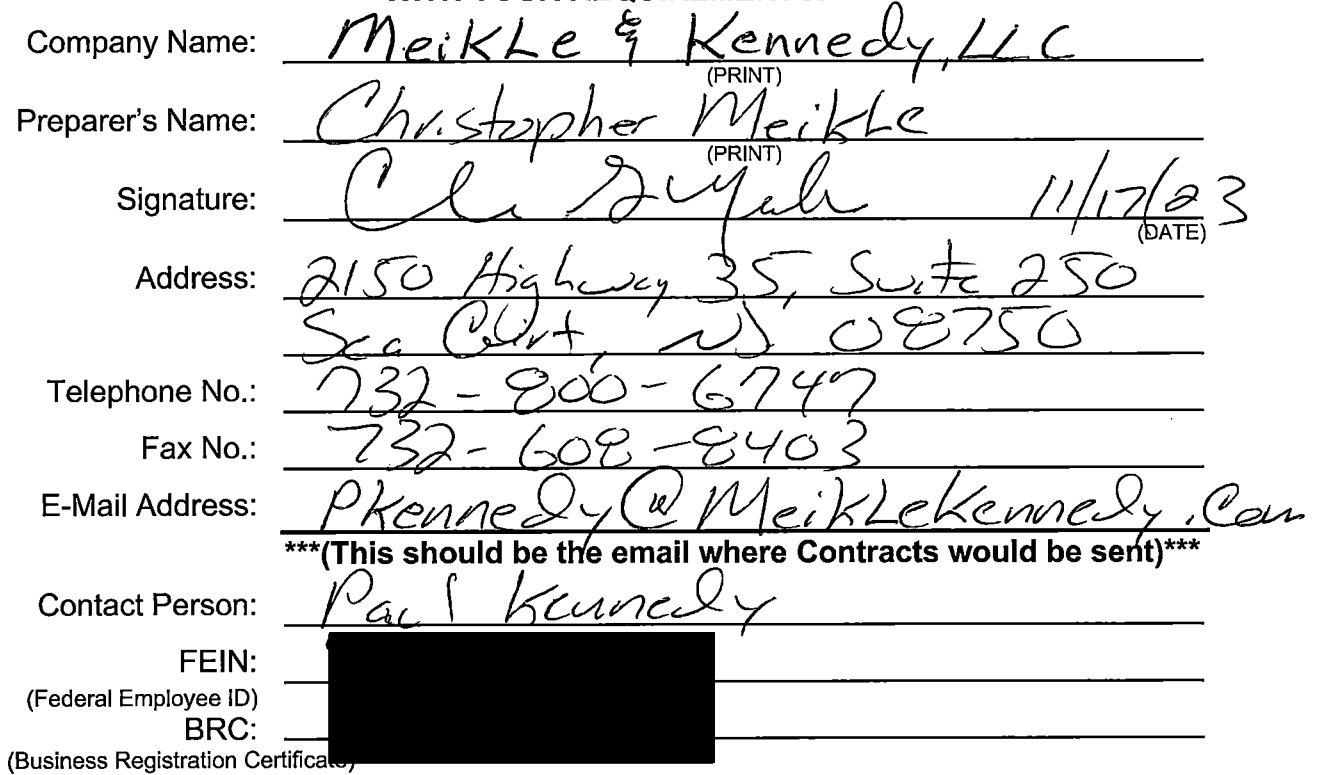 Company Name: MeikLe & Kennedy, LLC
(PRINT)
Preparer's Name: Christopher MeikLe
(PRINT)
Signature: 11/17/23
(DATE)
Address: 2150 Highway 35, Suite 250
Sea Girt, NJ 08750
Telephone No.: 732-800-6747
Fax No.: 732-608-8403
E-Mail Address: PKennedy@MeikLeKennedy.Com
***(This should be the email where Contracts would be sent)***
Contact Person: Paul Kennedy
FEIN:
(Federal Employee ID)
BRC:
(Business Registration Certificate)